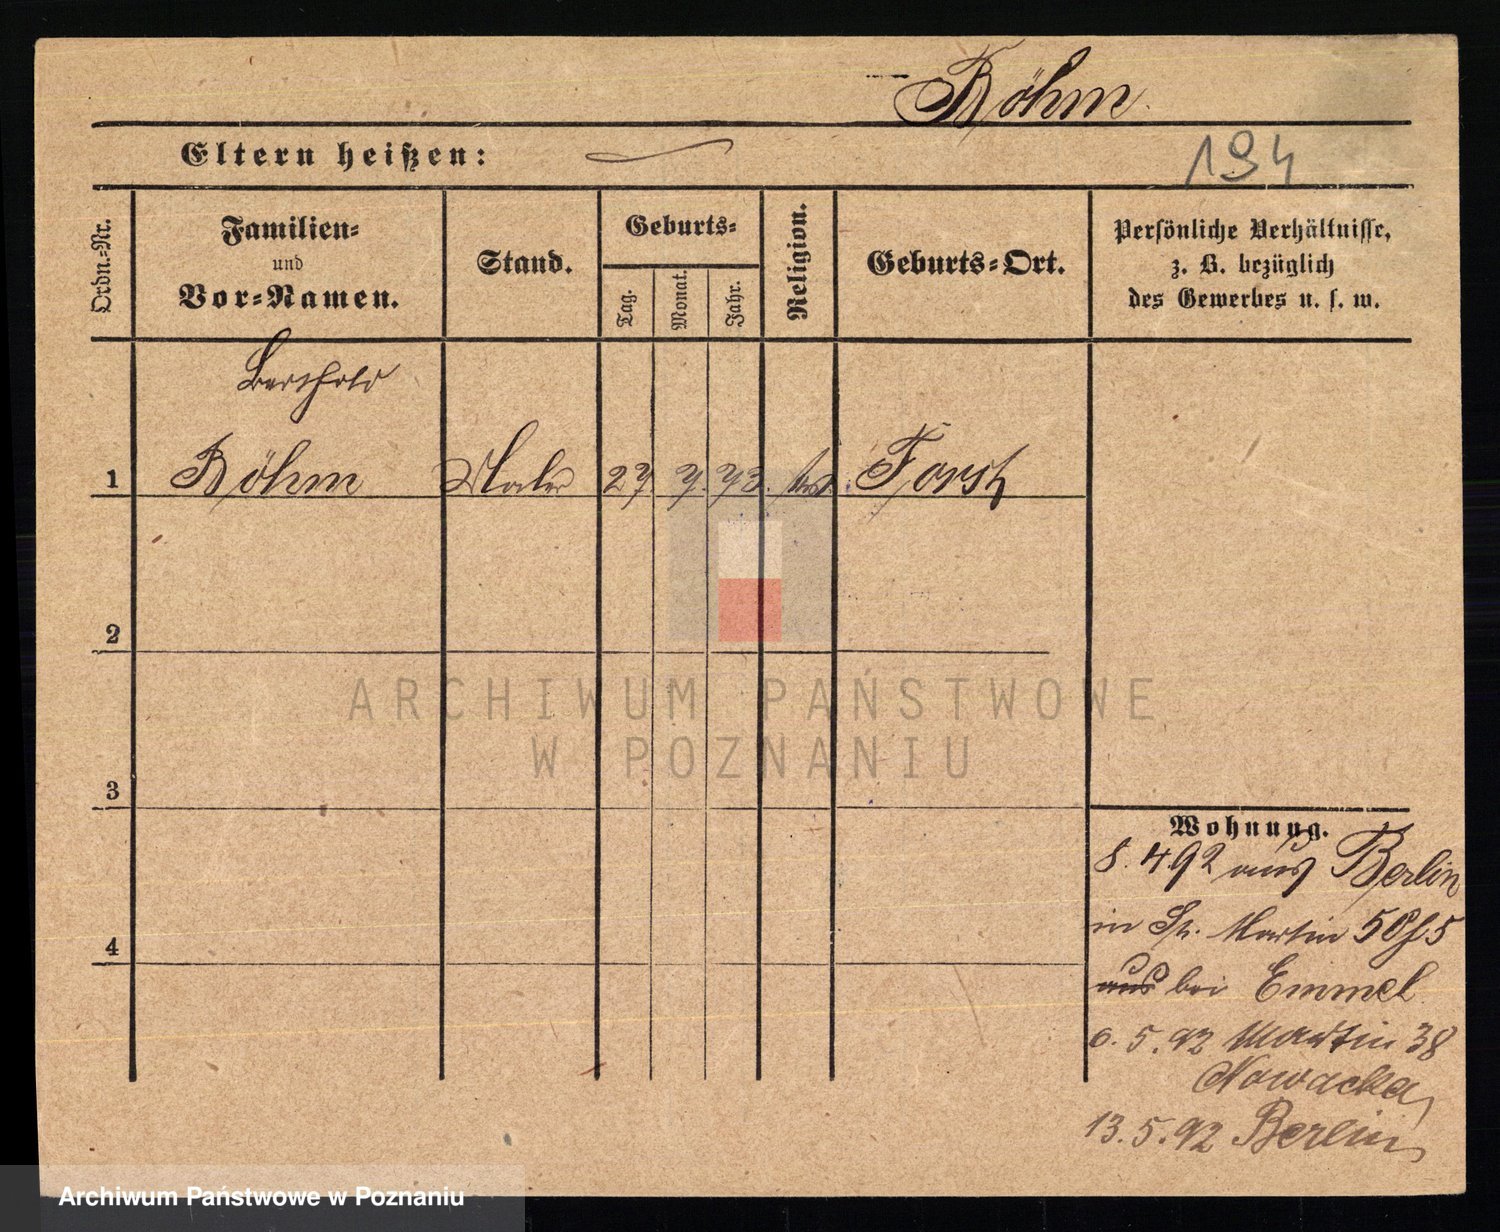 Röhm
Eltern heißen:
194
Ordn.-Nr.
Familien-
und
Vor-Namen.
Stand.
Geburts-
Tag.
Monat.
Jahr.
Religion.
Geburts-Ort.
Persönliche Verhältnisse,
z. B. bezüglich
des Gewerbes u. s. w.
Berthold
1 Röhm Maler 27 7. 73. Forst
2
3
4
ARCHIWUM PAŃSTWOWE
W POZNANIU
Wohnung.
8. 4 92 aus Berlin
in St. Martin 58/5
aus bei Emmel
6. 5. 92 Martin 38
Nowacka
13. 5. 92 Berlin
Archiwum Państwowe w Poznaniu